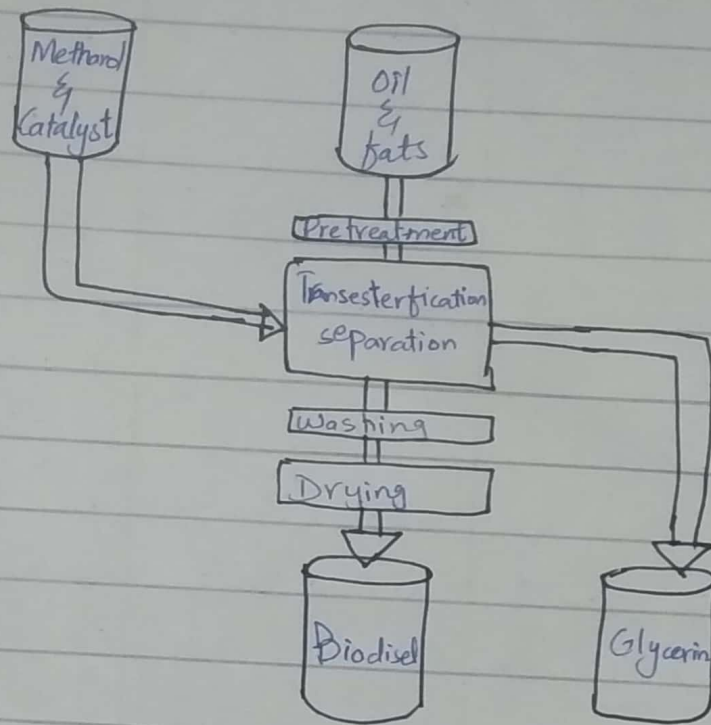 Methanol
&
Catalyst
Oil
&
fats
Pretreatment
Transesterfication
separation
Washing
Drying
Biodisel
Glycerin